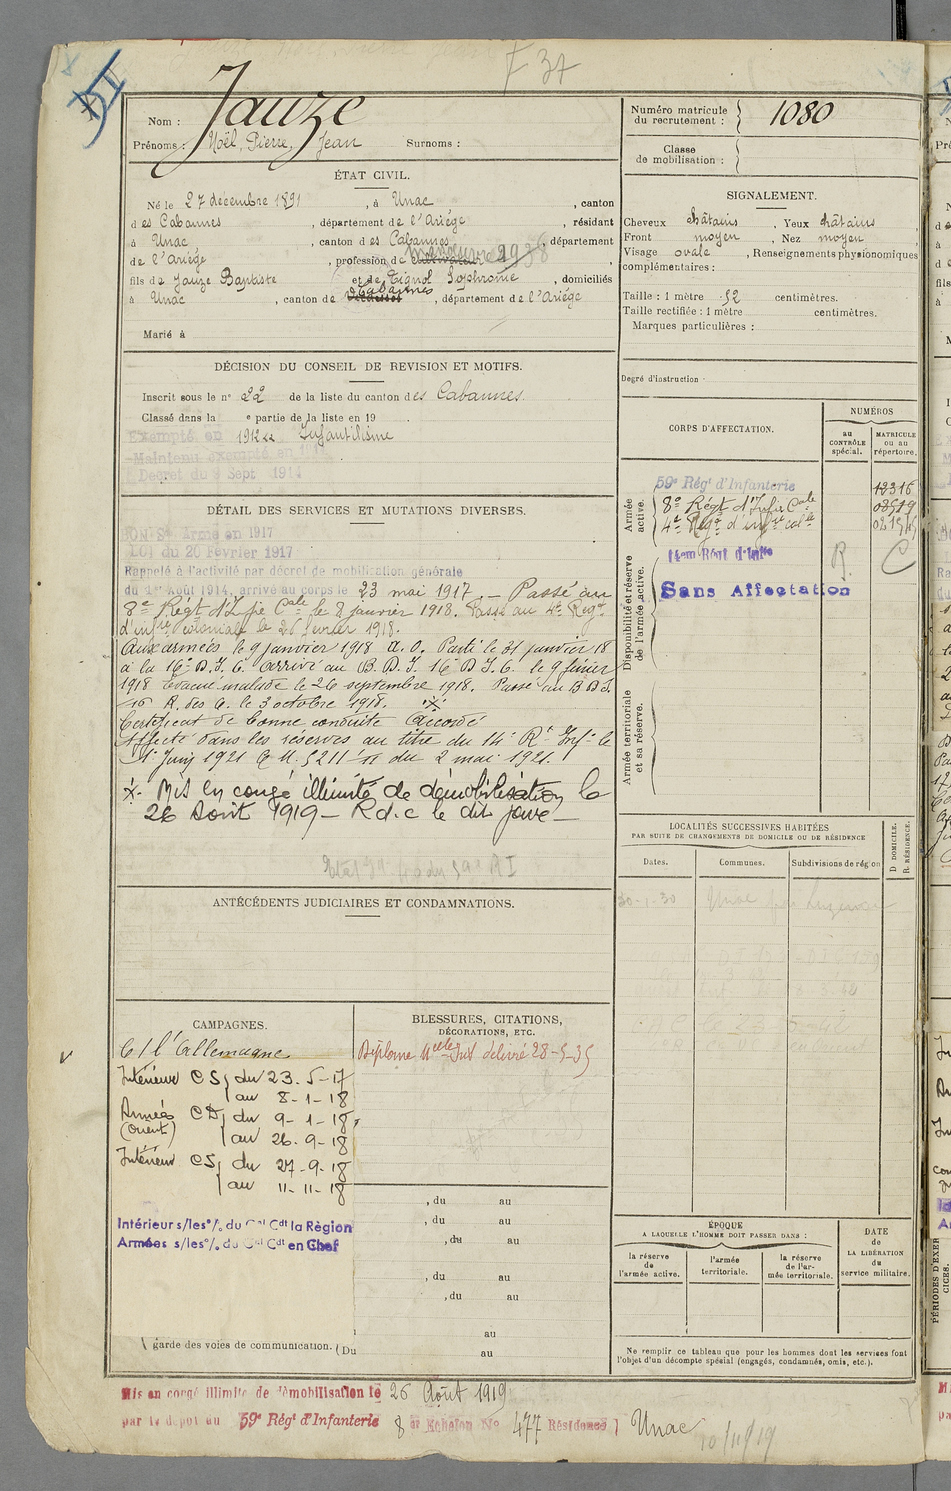 F 37
Nom : Jauze
Prénoms : Noël, Pierre, Jean Surnoms :
ÉTAT CIVIL.
Né le 27 décembre 1891, à Unac, canton
des Cabannes, département de l'Ariége, résidant
à Unac, canton des Cabannes, département
de l'Ariége, profession de
fils de Jauze Baptiste et de Tignol Sophronie, domiciliés
à Unac, canton de Cabannes, département de l'Ariége
Marié à
DÉCISION DU CONSEIL DE REVISION ET MOTIFS.
Inscrit sous le n° 22 de la liste du canton des Cabannes.
Classé dans la e partie de la liste en 19 .
Exempté en 1912 Infantilisme
Maintenu exempté en 1914
Décret du 9 Sept 1914
DÉTAIL DES SERVICES ET MUTATIONS DIVERSES.
BON Sce Armé en 1917
LOI du 20 Février 1917
Rappelé à l'activité par décret de mobilisation générale
du 1er Août 1914, arrivé au corps le 23 mai 1917. - Passé au
8e Régt d'Infie Cale le 8 janvier 1918. Passé au 4e Régt
d'infie coloniale le 26 février 1918.
Aux armées le 9 janvier 1918 A. O. Parti le 31 janvier 18
à la 16e D. I. C. Arrivé au B. D. I. 16e D I. C. le 9 février
1918 Evacué malade le 26 septembre 1918. Passé au B D I.
16 R. des C. le 3 octobre 1918. ※
Certificat de bonne conduite Accordé
Affecté dans les réserves au titre du 14e Rt Infie le
1r Juin 1921 C. M. 5211 du 2 mai 1921.
※ Mis en congé illimité de démobilisation le
26 Août 1919 - R d.c le dit jour -
ANTÉCÉDENTS JUDICIAIRES ET CONDAMNATIONS.
CAMPAGNES.
C/ l'Allemagne
Intérieur CS du 23.5-17
au 8-1-18
Armées CD du 9-1-18
(Orient) au 26-9-18
Intérieur CS du 27-9-18
au 11-11-18
Intérieur s/les °/. du Gal Cdt la Règion
Armées s/les °/. du Gal Cdt en Chef
garde des voies de communication. (Du au
BLESSURES, CITATIONS,
DÉCORATIONS, ETC.
, du au
, du au
, du au
, du au
, du au
au
au
Numéro matricule
du recrutement : 1080
Classe
de mobilisation :
SIGNALEMENT.
Cheveux châtains, Yeux châtains
Front moyen, Nez moyen
Visage ovale, Renseignements physionomiques
complémentaires :
Taille : 1 mètre 52 centimètres.
Taille rectifiée : 1 mètre centimètres.
Marques particulières :
Degré d'instruction
CORPS D'AFFECTATION.
NUMÉROS
au
CONTRÔLE
spécial.
MATRICULE
ou au
répertoire.
Armée
active.
59e Régt d'Infanterie 12316
8e Régt d'Infie Cale
4e Régt d'infie cole
Disponibilité et réserve
de l'armée active.
14em Régt d'Infie R C
Sans Affectation
Armée territoriale
et sa réserve.
LOCALITÉS SUCCESSIVES HABITÉES
PAR SUITE DE CHANGEMENTS DE DOMICILE OU DE RÉSIDENCE
Dates.
Communes.
Subdivisions de région
D. DOMICILE.
R. RÉSIDENCE.
30-1-30 Unac par Luzenac
ÉPOQUE
A LAQUELLE L'HOMME DOIT PASSER DANS :
la réserve
de
l'armée active.
l'armée
territoriale.
la réserve
de l'ar-
mée territoriale.
DATE
de
LA LIBÉRATION
du
service militaire.
Ne remplir ce tableau que pour les hommes dont les services font
l'objet d'un décompte spésial (engagés, condamnés, omis, etc.).
Mis en congé illimité de démobilisation le 26 Août 1919
par le dépot du 59e Régt d'Infanterie 8 er Echelon No 477 Résidence Unac
10/11/19
PÉRIODES D'EXER
CICES.